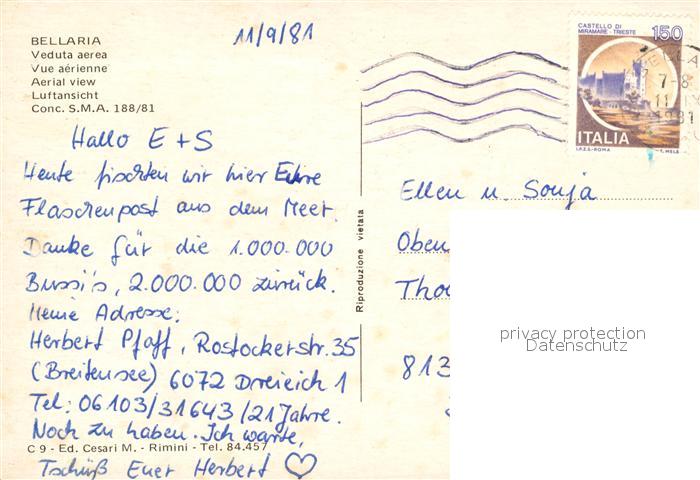 BELLARIA
Veduta aerea
Vue aérienne
Aerial view
Luftansicht
Conc. S.M.A. 188/81
11/9/81
CASTELLO DI
MIRAMARE - TRIESTE
150
ITALIA
I.P.Z.S. - ROMA
7-8
11
1981
Hallo E + S
Heute fischten wir hier Eure
Flaschenpost aus dem Meer.
Danke für die 1.000.000
Bussi's, 2.000.000 zurück.
Meine Adresse:
Herbert Pfaff, Rostockerstr. 35
(Breitensee) 6072 Dreieich 1
Tel: 06103/31643/21 Jahre.
Noch zu haben. Ich warte,
C 9 - Ed. Cesari M. - Rimini - Tel. 84.457
Tschüß Euer Herbert ♡
Riproduzione vietata
Ellen u. Sonja
Oben
Tho
813
privacy protection
Datenschutz